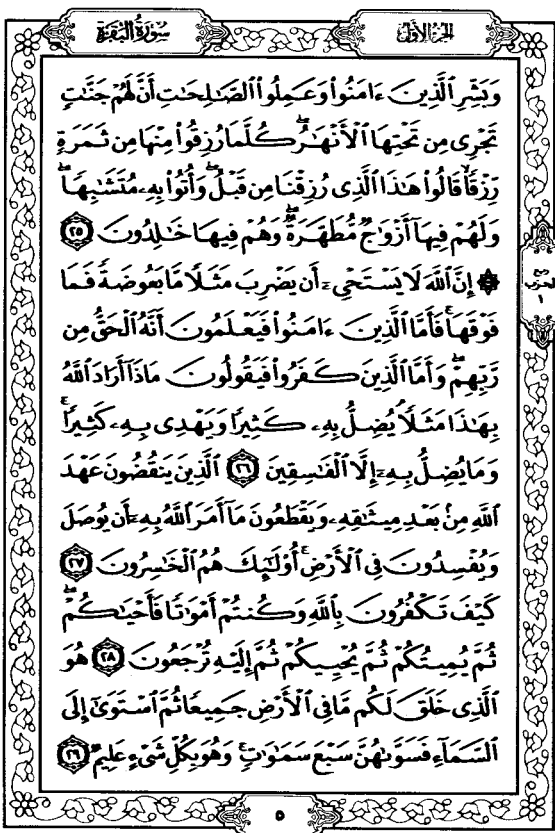 سُورَةُ الْبَقَرَةِ
الجزء الأول
وَبَشِّرِ ٱلَّذِينَ ءَامَنُوا۟ وَعَمِلُوا۟ ٱلصَّـٰلِحَـٰتِ أَنَّ لَهُمْ جَنَّـٰتٍ
تَجْرِى مِن تَحْتِهَا ٱلْأَنْهَـٰرُ ۖ كُلَّمَا رُزِقُوا۟ مِنْهَا مِن ثَمَرَةٍ
رِّزْقًا ۙ قَالُوا۟ هَـٰذَا ٱلَّذِى رُزِقْنَا مِن قَبْلُ ۖ وَأُتُوا۟ بِهِۦ مُتَشَـٰبِهًا ۖ
وَلَهُمْ فِيهَآ أَزْوَٰجٌ مُّطَهَّرَةٌ ۖ وَهُمْ فِيهَا خَـٰلِدُونَ ٢٥
۞ إِنَّ ٱللَّهَ لَا يَسْتَحْىِۦٓ أَن يَضْرِبَ مَثَلًا مَّا بَعُوضَةً فَمَا
فَوْقَهَا ۚ فَأَمَّا ٱلَّذِينَ ءَامَنُوا۟ فَيَعْلَمُونَ أَنَّهُ ٱلْحَقُّ مِن
رَّبِّهِمْ ۖ وَأَمَّا ٱلَّذِينَ كَفَرُوا۟ فَيَقُولُونَ مَاذَآ أَرَادَ ٱللَّهُ
بِهَـٰذَا مَثَلًا ۘ يُضِلُّ بِهِۦ كَثِيرًا وَيَهْدِى بِهِۦ كَثِيرًا ۚ
وَمَا يُضِلُّ بِهِۦٓ إِلَّا ٱلْفَـٰسِقِينَ ٢٦ ٱلَّذِينَ يَنقُضُونَ عَهْدَ
ٱللَّهِ مِنۢ بَعْدِ مِيثَـٰقِهِۦ وَيَقْطَعُونَ مَآ أَمَرَ ٱللَّهُ بِهِۦٓ أَن يُوصَلَ
وَيُفْسِدُونَ فِى ٱلْأَرْضِ ۚ أُو۟لَـٰٓئِكَ هُمُ ٱلْخَـٰسِرُونَ ٢٧
كَيْفَ تَكْفُرُونَ بِٱللَّهِ وَكُنتُمْ أَمْوَٰتًا فَأَحْيَـٰكُمْ ۖ
ثُمَّ يُمِيتُكُمْ ثُمَّ يُحْيِيكُمْ ثُمَّ إِلَيْهِ تُرْجَعُونَ ٢٨ هُوَ
ٱلَّذِى خَلَقَ لَكُم مَّا فِى ٱلْأَرْضِ جَمِيعًا ثُمَّ ٱسْتَوَىٰٓ إِلَى
ٱلسَّمَآءِ فَسَوَّىٰهُنَّ سَبْعَ سَمَـٰوَٰتٍ ۚ وَهُوَ بِكُلِّ شَىْءٍ عَلِيمٌ ٢٩
ربع
الحزب
١
٥